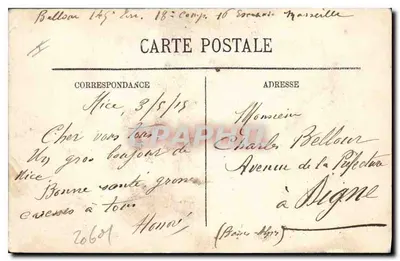 Bellour 145e Ter. 18e Comp. 10 Escouade Marseille
CARTE POSTALE
CORRESPONDANCE
ADRESSE
Nice, 3/5/15
Cher vous tous
Un gros boujour de
Nice.
Bonne santé, grosses
caresses à tous
Honoré
Monsieur
Charles Bellour
Avenue de la Préfecture
à Digne
(Basses-Alpes)